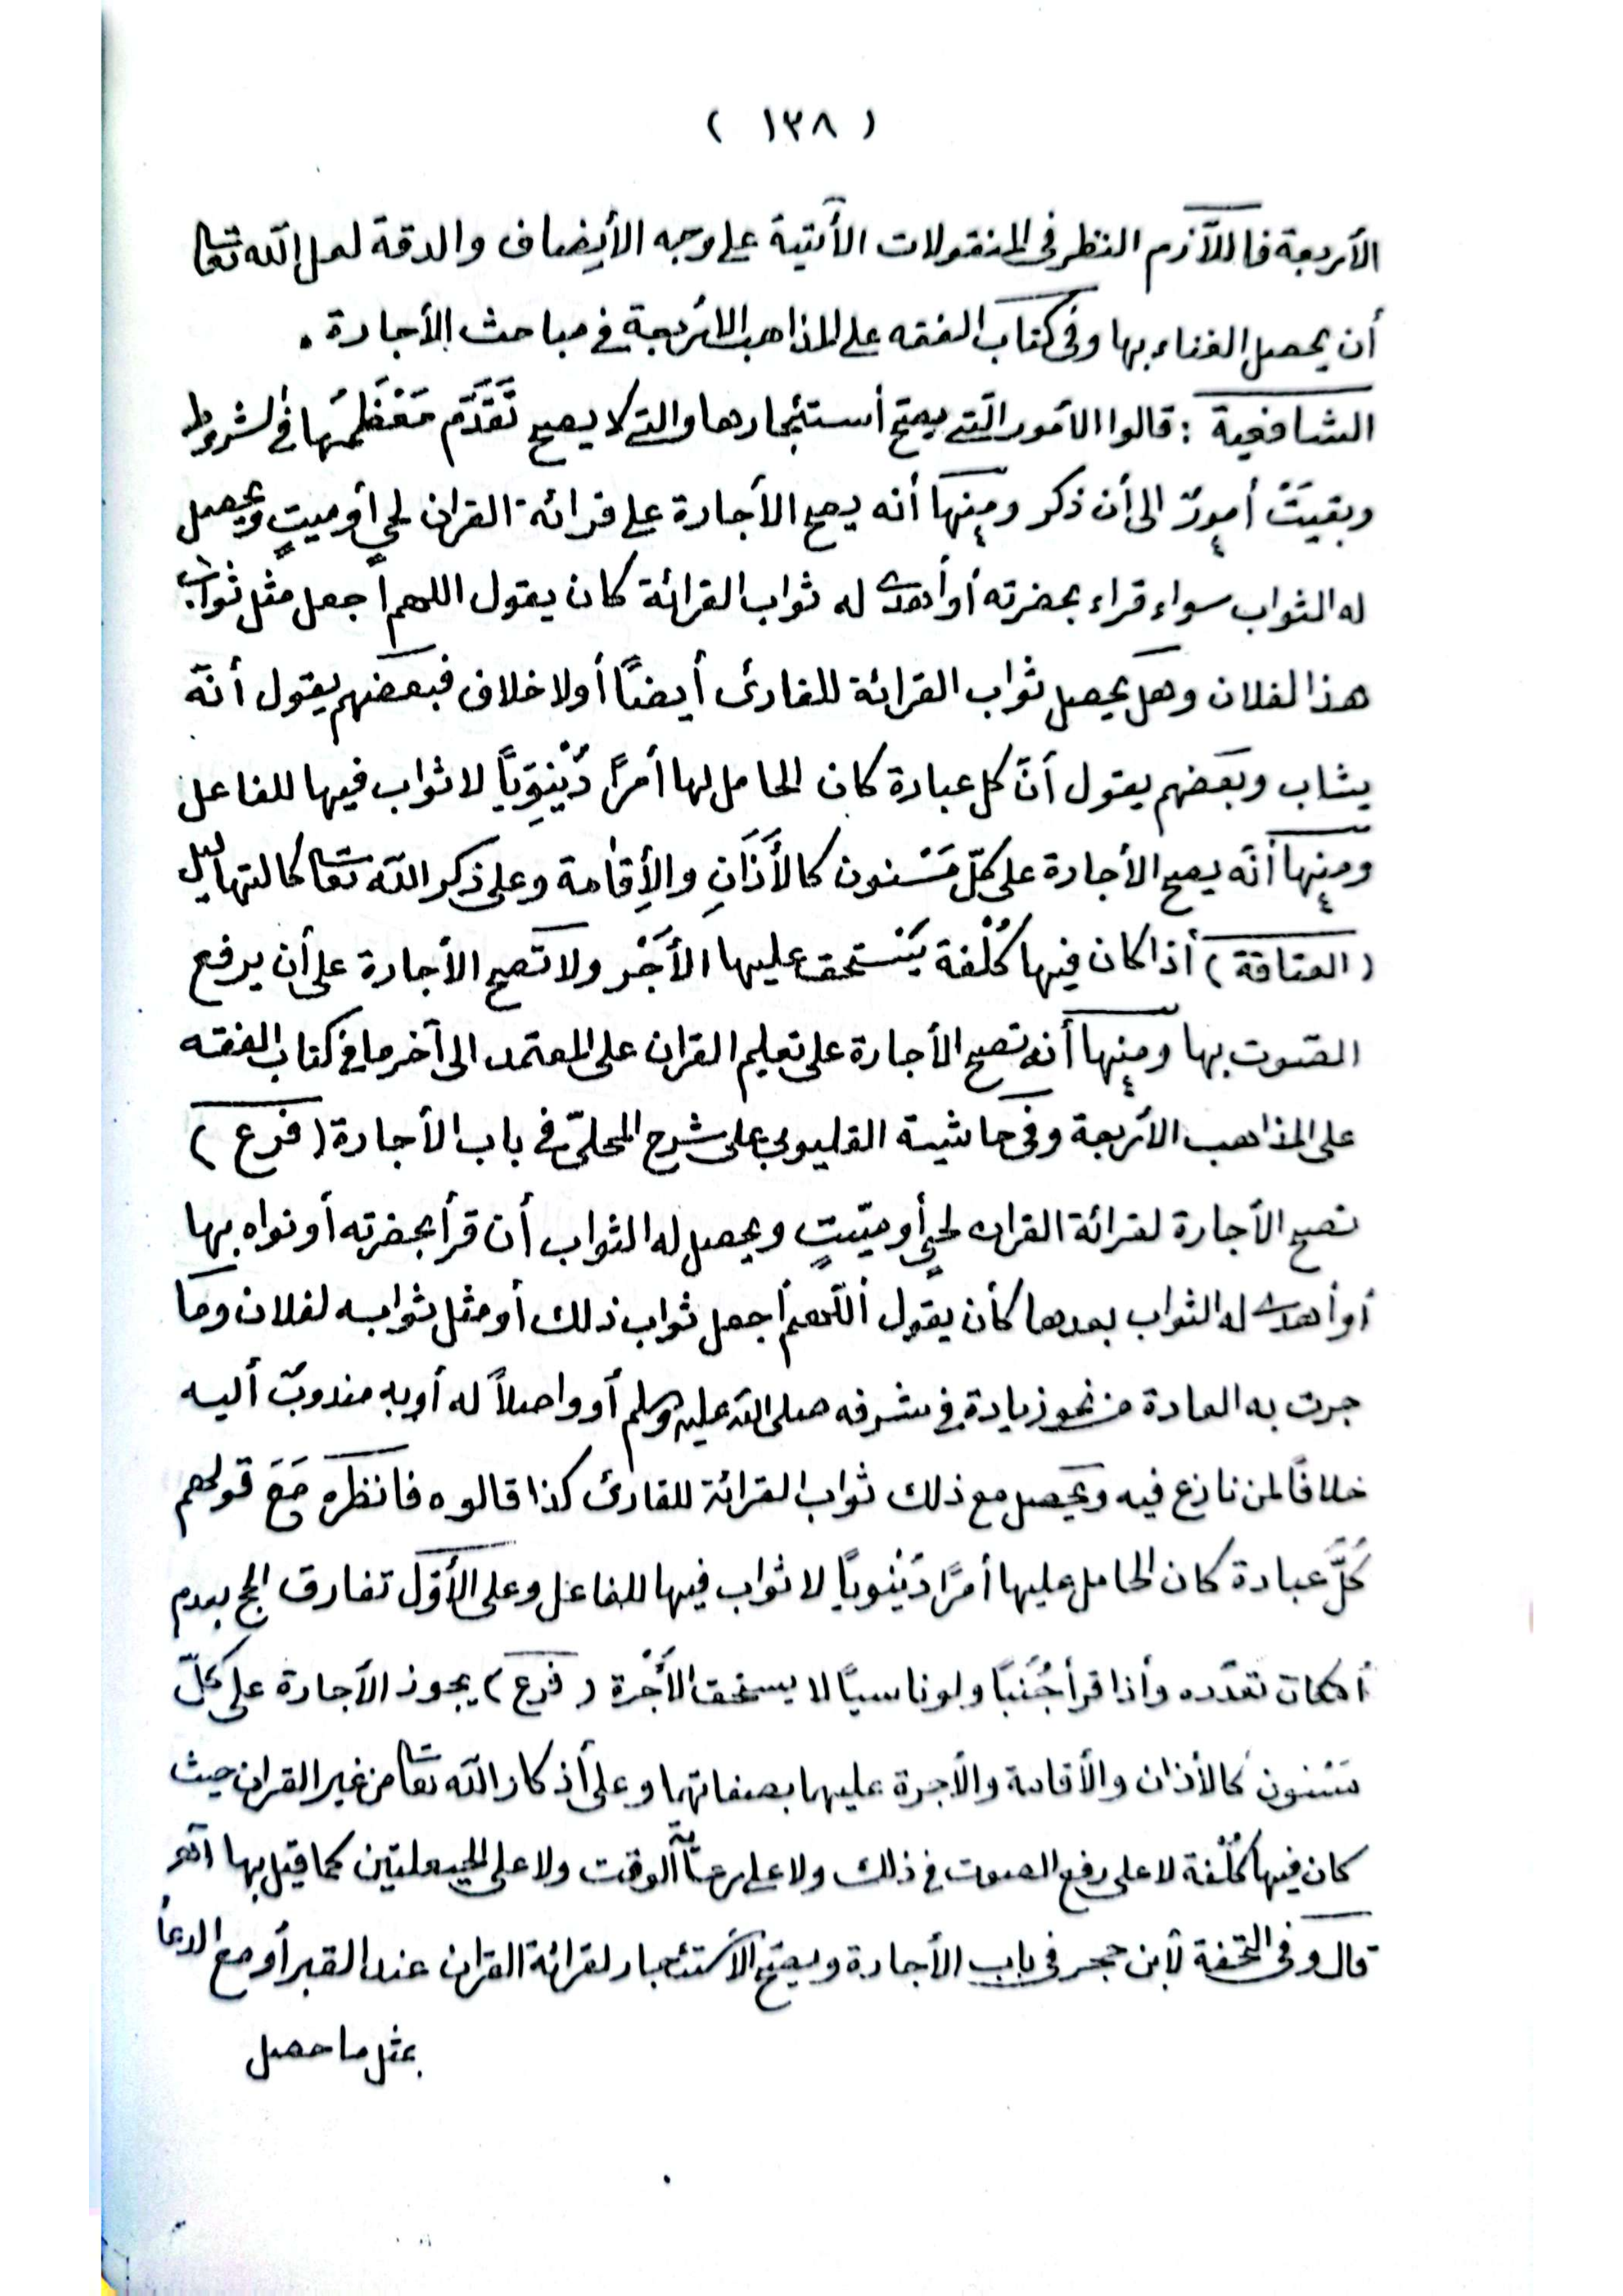 ( ١٣٨ )
الأربعة فاللّازم النظر فى المنقولات الأتية على وجه الأيضاف والدقة لعل الله تعا
أن يحصل الغناء بها وفى كتاب الفقه على المذاهب الأربعة فى مباحث الأجارة .
الشافعية : قالوا الأمور الّتى يصحّ أستئجارها والتى لا يصح تَقَدَّم مَعْظَمُهَا فى الشروط
وبقيَتْ أمورٌ الى أن ذكر ومنها أنه يصح الأجارة على قرائة القران لحيٍ أو ميتٍ ويحصل
له الثواب سواء قراء بحضرته أو أهدى له ثواب القرائة كان يقول اللهم أجعل مثل ثواب
هذا لفلان وهل يحصل ثواب القرائة للقارئ أيضًا أولا خلاف فبعضهم يقول أنّه
يثاب وبعضهم يقول أنّ كل عبادة كان الحامل لها أمرًا دُيْنِوِيّاً لا ثواب فيها للفاعل
ومنها أنّه يصح الأجارة على كلّ مَسْنون كالأَذَانِ والأِقامة وعلى ذكر الله تعا كالتهاليل
( العتاقة ) أذا كان فيها كُلْفة يَسْتحق عليها الأَجْر ولا تصح الأجارة على أن يرفع
الصوت بها ومنها أنه تصح الأجارة على تعليم القران على المعتمد الى آخر ما فى كتاب الفقه
على المذاهب الأربعة وفى حاشية القليوبى على شرح المحلّى فى باب الأجارة ( فرع )
تصح الأجارة لقرائة القران لحيٍ أو ميّتٍ ويحصل له الثواب أن قرأ بحضرته أو نواه بها
أو أهدى له الثواب بعدها كأن يقول أللّهم أجعل ثواب ذلك أو مثل ثوابه لفلان وما
جرت به العادة من نحو زيادة فى شرفه صلى الله عليه وسلم أو واصلاً له أو به مندوبٌ أليه
خلافًا لمن نازع فيه ويحصل مع ذلك ثواب القرائة للقارئ كذا قالوه فانظره مَعَ قولهم
كلَّ عبادة كان الحامل عليها أمرًا دَيْنُوياً لا ثواب فيها للفاعل وعلى الأوّل تفارق الحج بعدم
أمكان تعدّده وأذا قرأ جُنَبًا ولو ناسيًا لا يستحق الأَجْرة ( فرع ) يجوز الأجارة على كلّ
مَسْنون كالأذان والأقامة والأجرة عليهما بصفاتهما وعلى أذكار الله تعا من غير القران حيث
كان فيها كُلْفة لا على رفع الصوت فى ذلك ولا على رعاية الوقت ولا على الحيعلتين كما قيل بها آهـ
قال وفى التحفة لأبن حجر فى باب الأجارة ويصحّ الأستئجار لقرائة القران عند القبر أو مع الدعأ
بمثل ما حصل